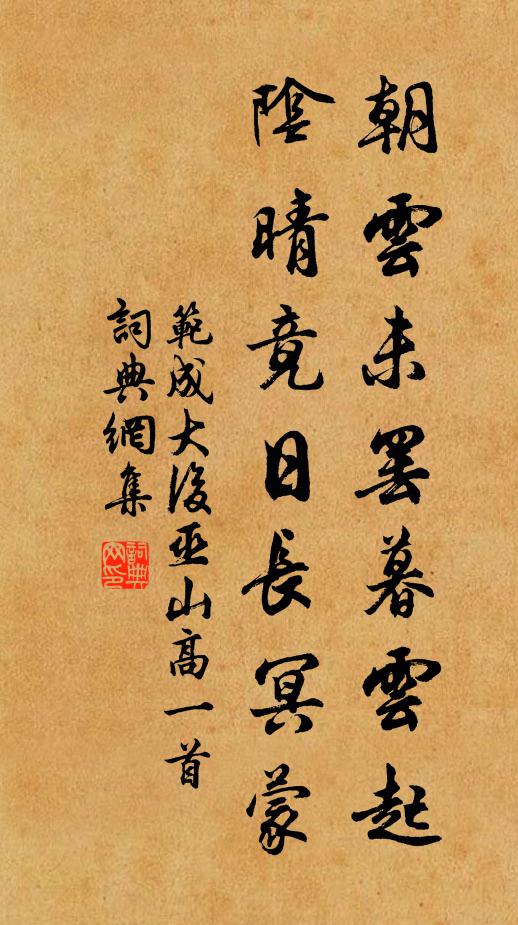 朝雲未罷暮雲起
陰晴竟日長冥蒙
範成大後巫山高一首
詞典網集
詞典網印